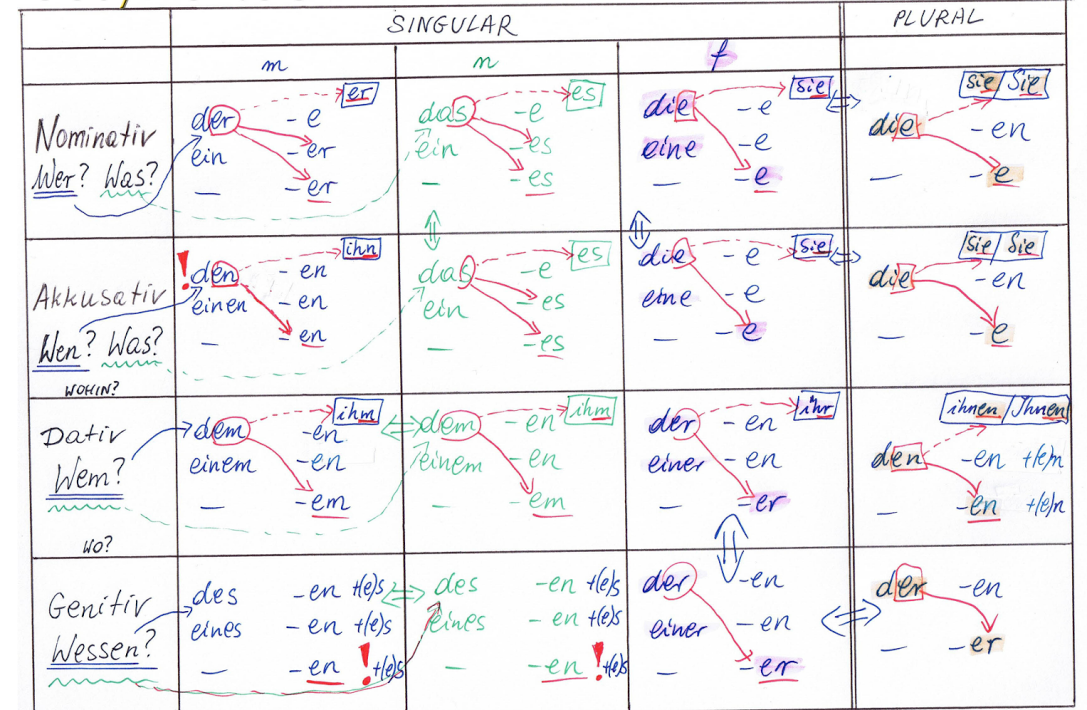 SINGULAR PLURAL
m n f
Nominativ
Wer? Was?
der -e er
ein -er
— -er
das -e es
ein -es
— -es
die -e sie
eine -e
— -e
sie/Sie
die -en
— -e
Akkusativ
Wen? Was?
WOHIN?
! den -en ihn
einen -en
— -en
das -e es
ein -es
— -es
die -e sie
eine -e
-e
sie/Sie
die -en
— -e
Dativ
Wem?
WO?
dem -en ihm
einem -en
— -em
dem -en ihm
einem -en
— -em
der -en ihr
einer -en
— -er
ihnen/Ihnen
den -en +(e)n
— -en +(e)n
Genitiv
Wessen?
des -en +(e)s
eines -en +(e)s
— -en ! +(e)s
des -en +(e)s
eines -en +(e)s
— -en ! +(e)s
der -en
einer -en
— -er
der -en
— -er